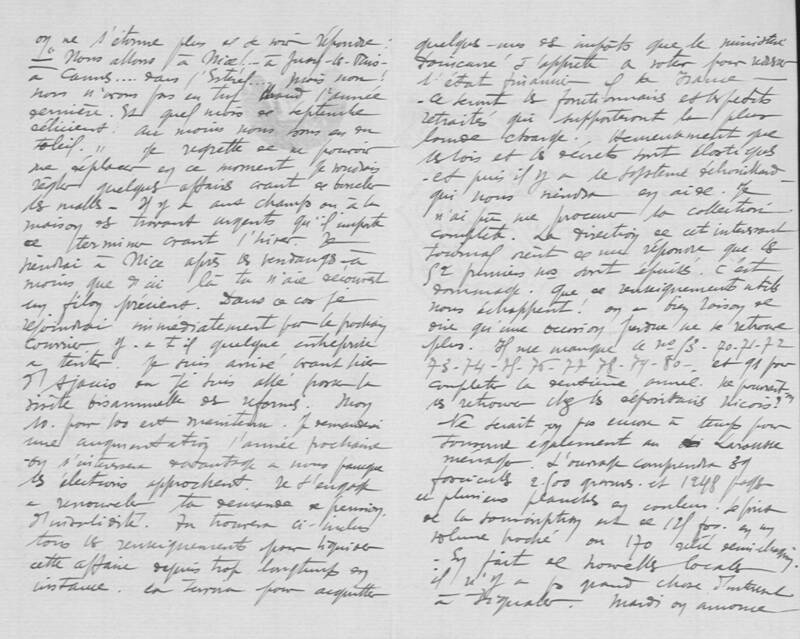 on ne s'étonne plus de vous répondre :
"Nous allons à Nice! - à Juan-les-Pins -
à Cannes.... dans l'Estérel.... Mais non!
nous n'avons pas eu trop chaud l'année
dernière. Et quel mois de septembre
délicieux! au moins nous avons eu du
soleil." Je regrette de ne pouvoir
me déplacer en ce moment. Je voudrais
régler quelques affaires avant de boucler
les malles - Il y a aux champs ou à la
maison des travaux urgents qu'il importe
de terminer avant l'hiver. Je
viendrai à Nice après les vendanges - à
moins que d'ici là tu n'aies découvert
un filon précieux. Dans ce cas je
rejoindrai immédiatement par le prochain
courrier. Y a-t-il quelque entreprise
à tenter. Je suis arrivé avant hier
d'Ajaccio où je suis allé passer la
visite bisannuelle de réforme. Mon
10. pour 100 est maintenu. Je demanderai
une augmentation l'année prochaine
on s'intéresse davantage à nous lorsque
les élections approchent. Je t'engage
à renouveler ta demande de pension
d'invalidité. Tu trouveras ci-inclus
tous les renseignements pour liquider
cette affaire depuis trop longtemps en
instance. pour acquitter
quelques-uns des impôts que le ministère
s'apprête à voter pour
l'état financier de la France
- Ce seront les fonctionnaires et les petits
retraités qui supporteront la plus
lourde charge. Heureusement que
les lois et les décrets sont élastiques
- et puis il y a le système débrouillard
qui nous viendra en aide. Je
n'ai pu me procurer la collection
complète. La direction de cet intéressant
journal vient de me répondre que les
52 premiers nos sont épuisés. C'est
dommage. Que de renseignements utiles
nous échappent! on a bien raison de
dire qu'une occasion perdue ne se retrouve
plus. Il me manque le no 70-71-72
73-74-75-76-77 78-79-80- et 91 pour
compléter la deuxième année. Ne pourrait-on
les retrouver chez les dépositaires Niçois?
Ne serait-on pas encore à temps pour
souscrire également au Larousse
ménager. L'ouvrage comprendra 39
fascicules 2.500 gravures et 1248 pages
et plusieurs planches en couleurs. Le prix
de la souscription est de 125 frs. en un
volume broché ou 170 relié demi chagrin.
- En fait de nouvelles locales
il n'y a pas grand chose d'intéressant
à signaler. Mardi on annonce